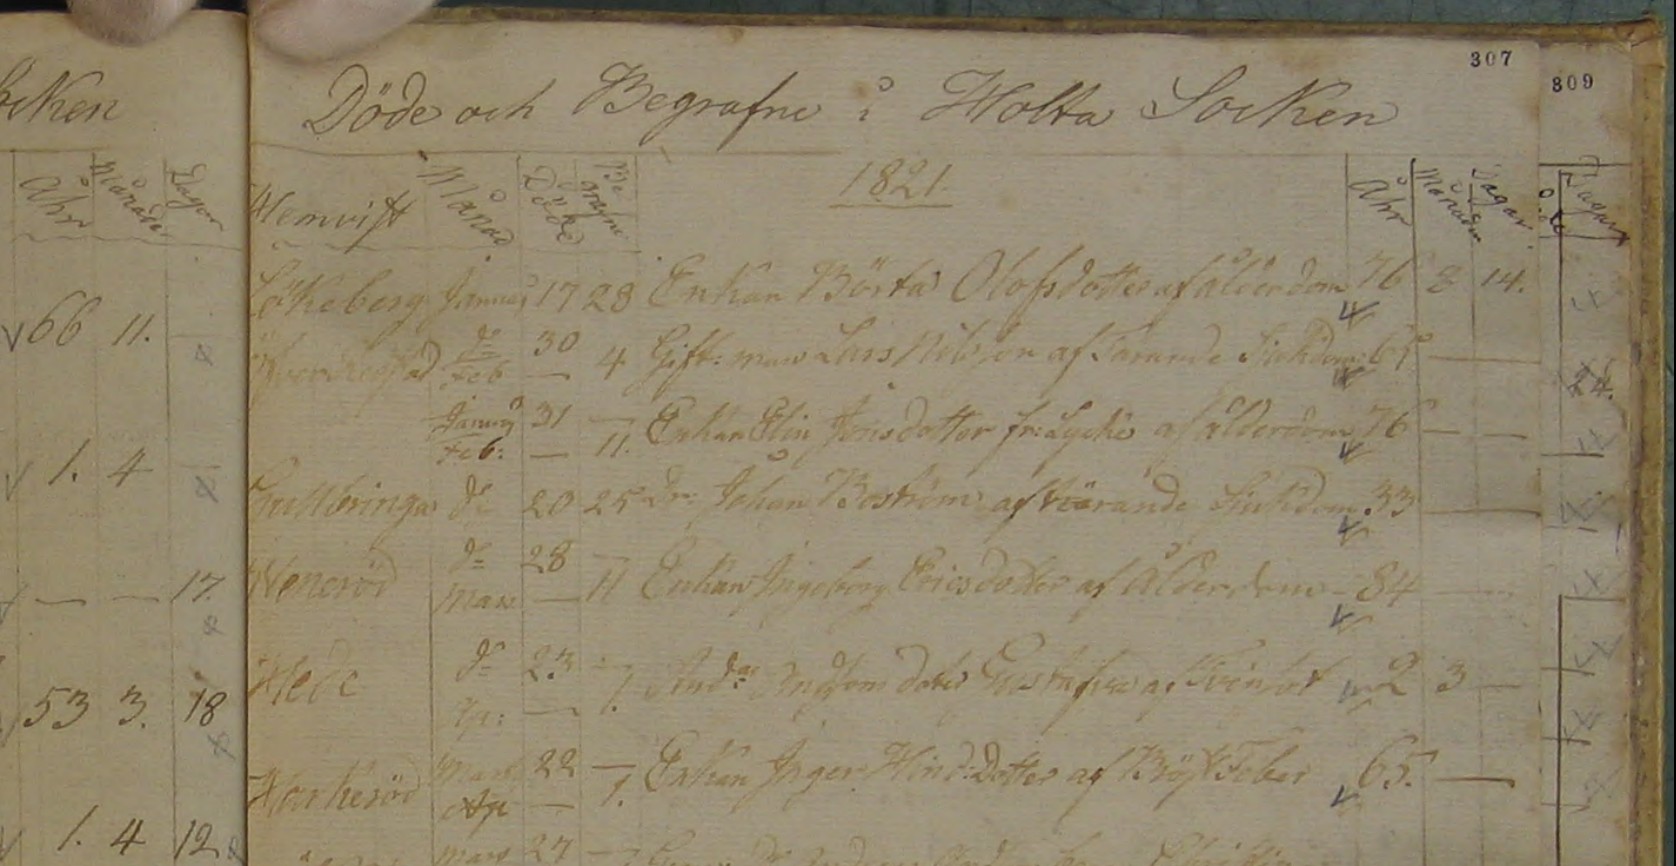 ocken
Ahr Månader Dagar
66 11.
1. 4
17.
53 3. 18
1. 4 12
307
809
Döde och Begrafne i Holta Socken
1821.
Hemvist Månad Döde Begrafne Åhr Månader Dagar
Dagar
Lökeberg Januarj 17 28 Enkan Börta Olofsdotter af ålderdom 76 8 14.
dº 30
Feb — 4 Gift: man Lars Nilsson af Tärande Siukdom 61 —
Januarj 31 —
Feb: — 11. Enkan Elin Jonsdotter fr: Lycke af ålderdom 76 — —
Gullbringa dº 20 25 Dr: Johan Boström af tärande Siukdom 33 —
Weneröd dº 28 —
Mars — 11 Enkan Ingeborg Ericsdotter af Ålderdom — 84 —
Hede dº 23 —
Ap: — 1. And: doter af 2 3 —
Harkeröd Mars 22 —
Ap — 1. Enkan Inger Hind: Dotter af BröstFeber 65. —
Mars 27 —